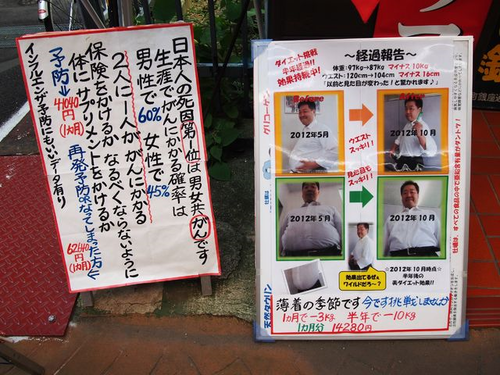 日本人の死因第1位は男女共がんです
生涯でがんにかかる確率は
男性で60% 女性で45%
2人に1人ががんにかかる
保険をかけるか なるべくならないように
体にサプリメントをかけるか
予防→4040円(1カ月)
再発予防orなってしまった方に
62640円(1カ月)
インフルエンザ予防にもいいデータ有り
～経過報告～
ダイエット挑戦
半年経過!!
効果持続中!
体重:97kg→87kg マイナス 10Kg
ウエスト:120cm→104cm マイナス 16cm
「以前と見た目が変わった!と驚かれます♪」
Before
After
2012年5月
2012年10月
ウエスト
スッキリ!
見た目も
スッキリ!
2012年5月
2012年10月
効果出てるぜぇ
ワイルドだろ～?
☆2012年10月時点☆
半年後の
薄着の季節です 今です
1カ月で-3kg 半年で-10Kg
1カ月分 14280円